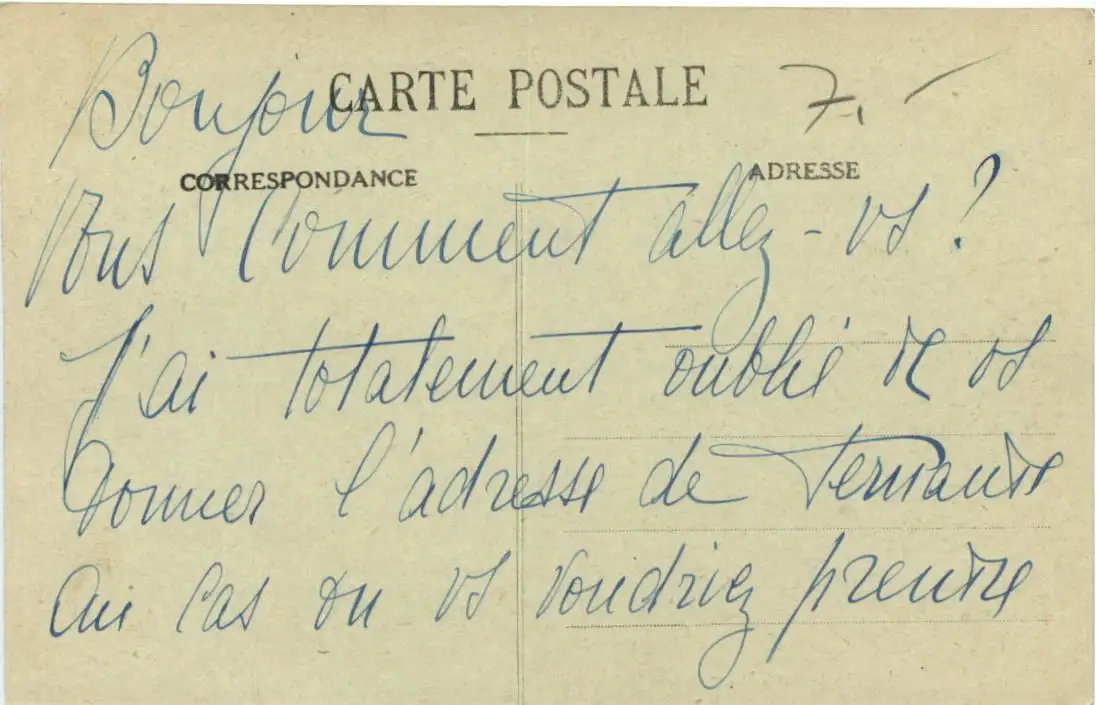 Bonjour
CARTE POSTALE
7.-
CORRESPONDANCE
ADRESSE
Vous Comment allez-vs ?
J'ai totalement oublié de vs
Donner l'adresse de Fernande
Au Cas ou vs voudriez prendre